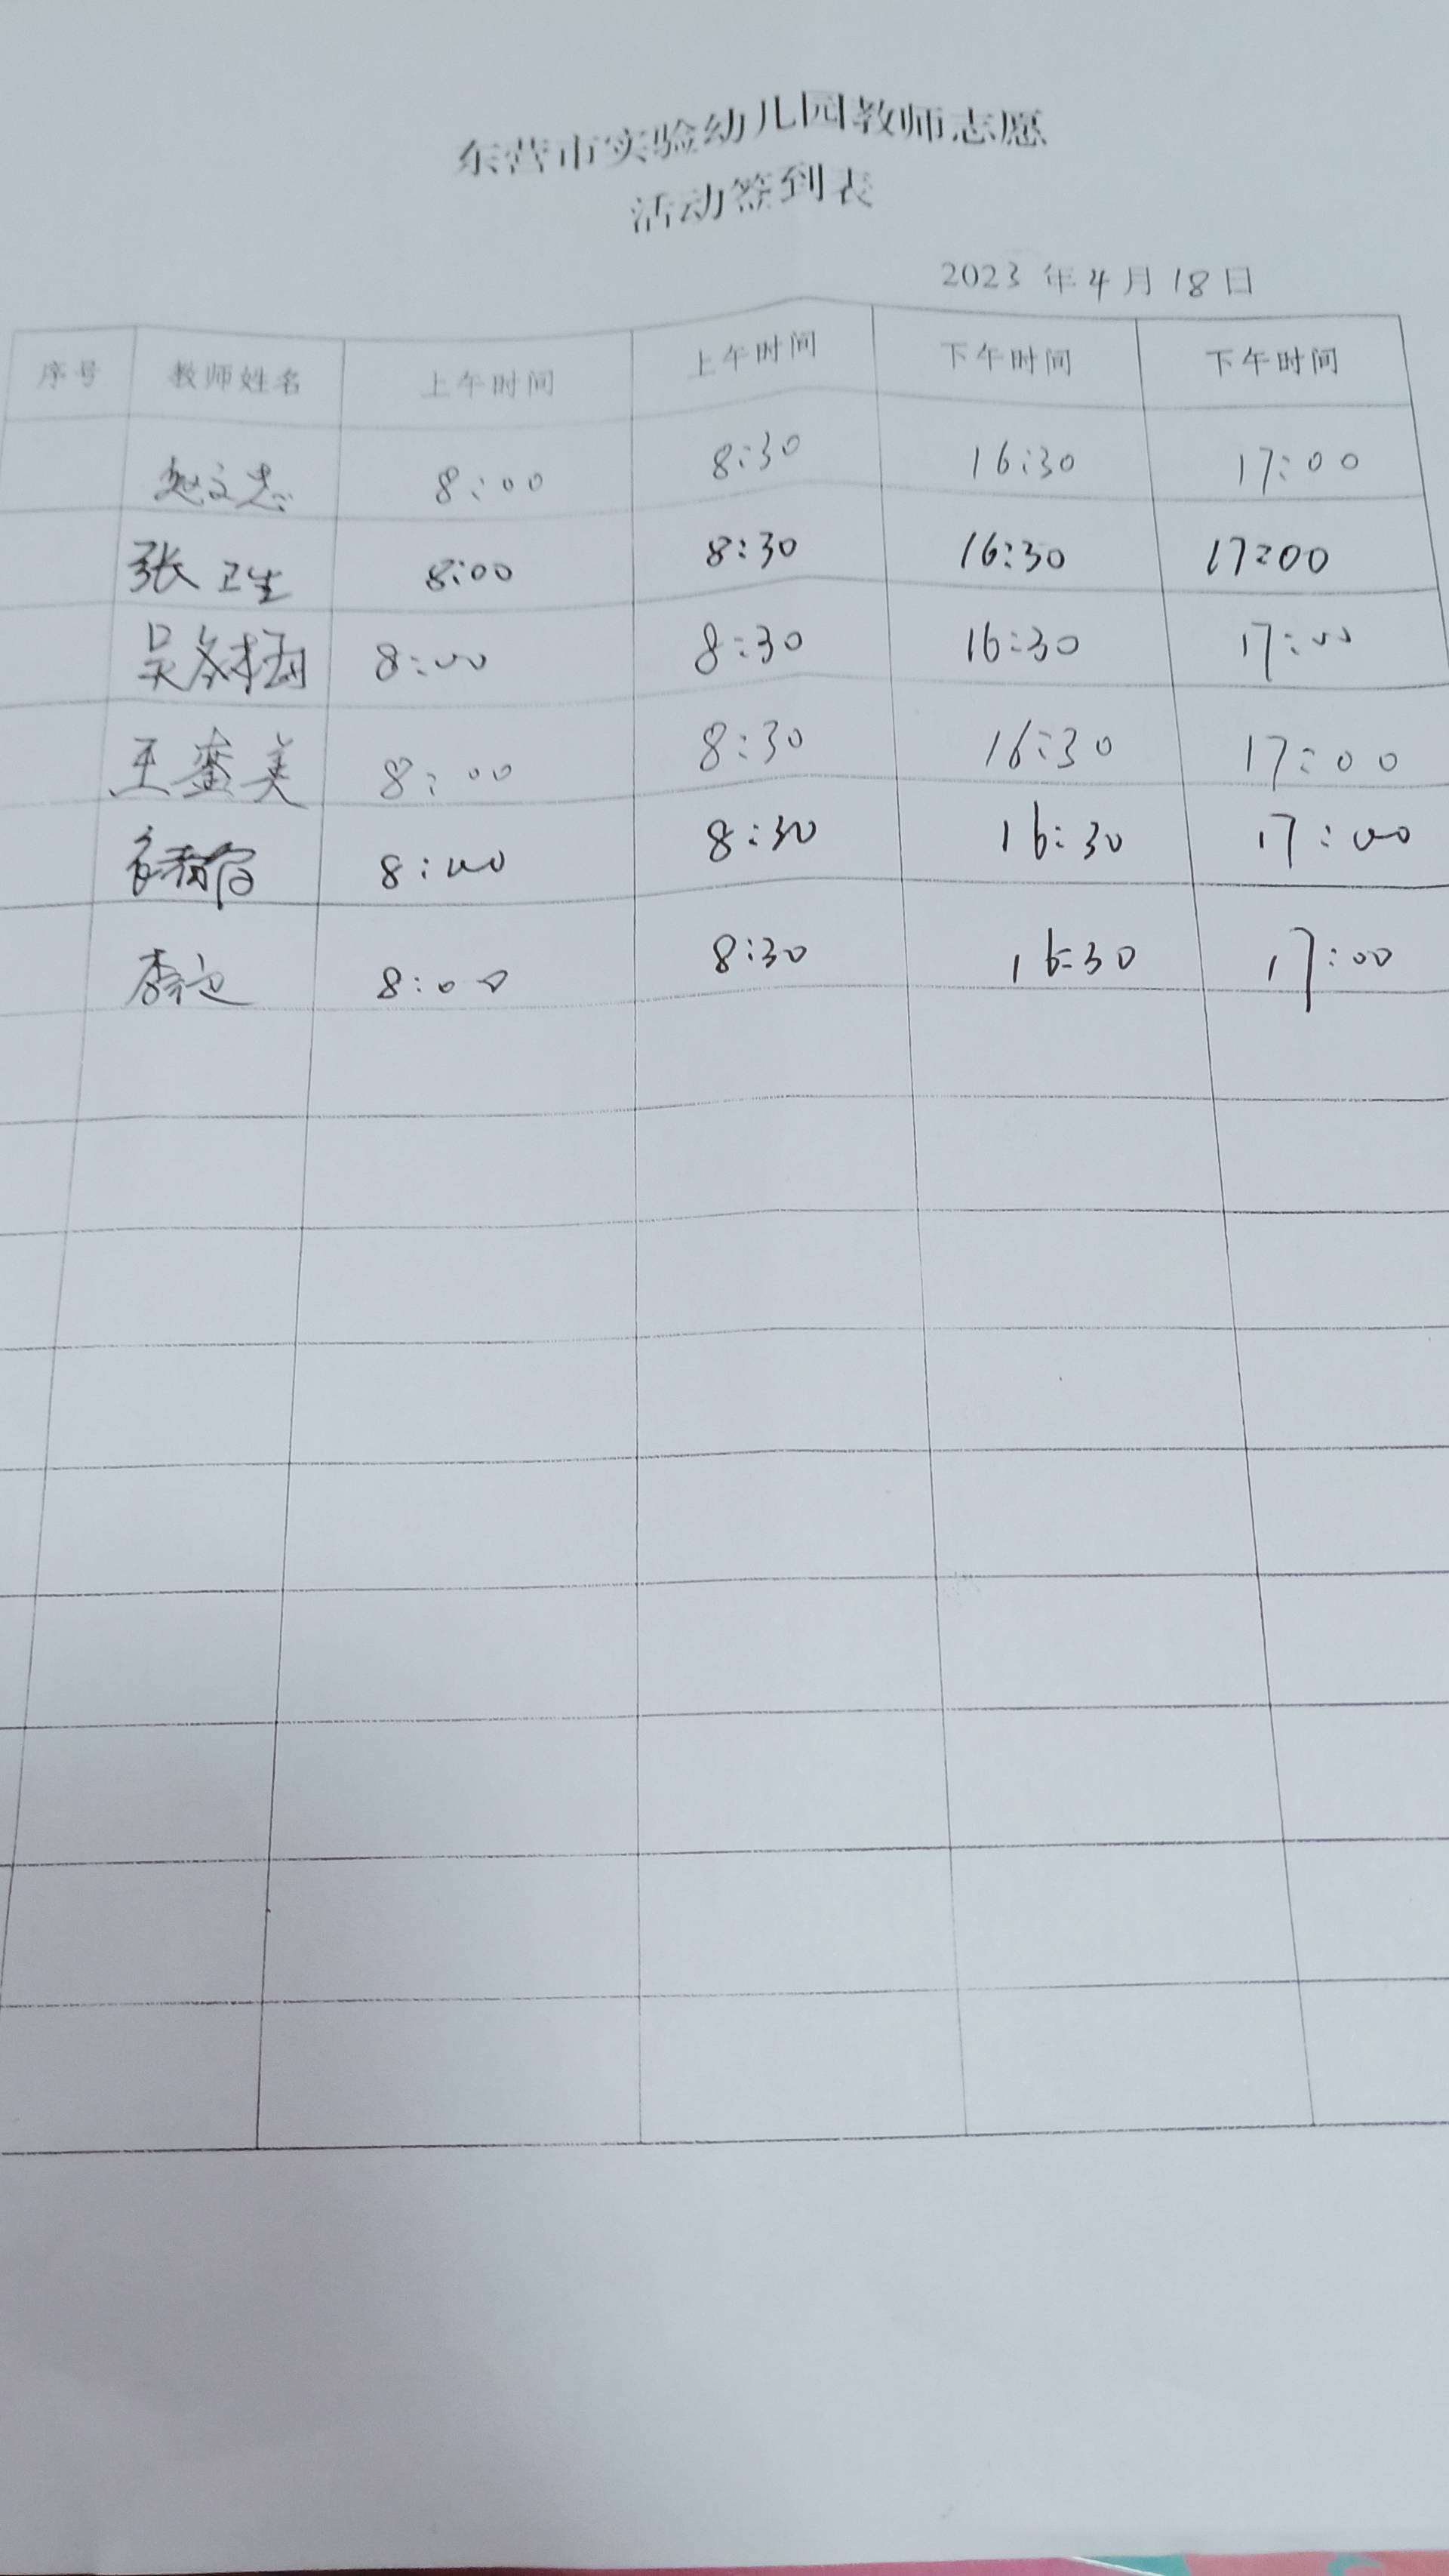 东营市实验幼儿园教师志愿
活动签到表
2023 年 4 月 18 日
序号 教师姓名 上午时间 上午时间 下午时间 下午时间
赵文志 8:00 8:30 16:30 17:00
张卫生 8:00 8:30 16:30 17:00
吴 8:00 8:30 16:30 17:00
王 美 8:00 8:30 16:30 17:00
8:00 8:30 16:30 17:00
李 8:00 8:30 16:30 17:00